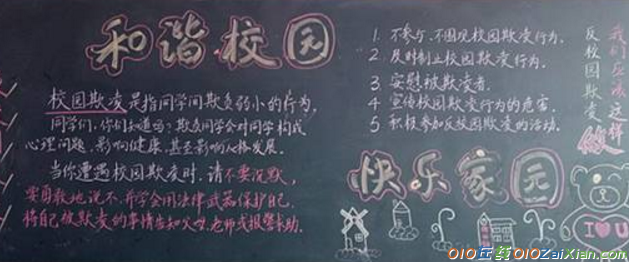 和谐校园
校园欺凌是指同学间欺负弱小的行为,
同学们,你们知道吗?欺负同学会对同学构成
心理问题,影响健康,甚至影响人格发展。
当你遭遇校园欺凌时,请不要沉默,
要勇敢地说不,并学会用法律武器保护自己,
将自己被欺凌的事情告知父母、老师或报警求助。
1. 不参与、不围观校园欺凌行为。
2. 及时制止校园欺凌行为。
3. 安慰被欺凌者。
4 宣传校园欺凌行为的危害。
5 积极参加反校园欺凌的活动。
我们应该这样做
反校园欺凌
快乐家园
I ♥ U
010在线010ZaiXian.com